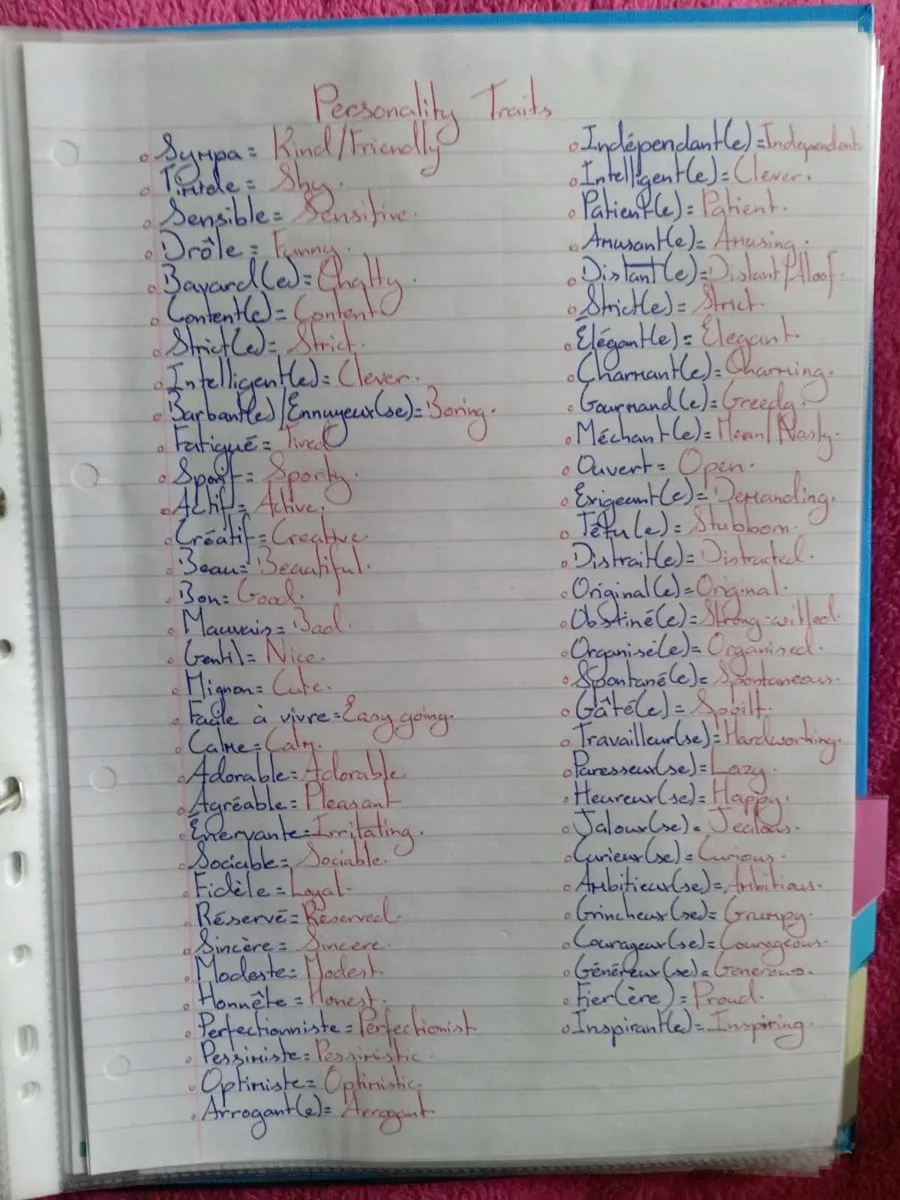 Personality Traits
Sympa = Kind/Friendly
Timide = Shy.
Sensible = Sensitive.
Drôle = Funny.
Bavard(e) = Chatty.
Content(e) = Content
Strict(e) = Strict.
Intelligent(e) = Clever.
Barbant(e)/Ennuyeux(se) = Boring.
Fatigué = Tired
Sportif = Sporty.
Actif = Active.
Créatif = Creative
Beau = Beautiful.
Bon = Good.
Mauvais = Bad.
Gentil = Nice.
Mignon = Cute.
Facile à vivre = Easy going.
Calme = Calm.
Adorable = Adorable
Agréable = Pleasant
Énervante = Irritating.
Sociable = Sociable.
Fidèle = Loyal.
Réservé = Reserved.
Sincère = Sincere.
Modeste = Modest
Honnête = Honest.
Perfectionniste = Perfectionist
Pessimiste = Pessimistic.
Optimiste = Optimistic.
Arrogant(e) = Arrogant
Indépendant(e) = Independent.
Intelligent(e) = Clever.
Patient(e) = Patient.
Amusant(e) = Amusing.
Distant(e) = Distant/Aloof.
Strict(e) = Strict.
Élégant(e) = Elegant.
Charmant(e) = Charming.
Gourmand(e) = Greedy.
Méchant(e) = Mean/Nasty.
Ouvert = Open.
Exigeant(e) = Demanding.
Têtu(e) = Stubborn.
Distrait(e) = Distracted.
Original(e) = Original.
Obstiné(e) = Strong-willed.
Organisé(e) = Organised.
Spontané(e) = Spontaneous.
Gâté(e) = Spoilt.
Travailleur(se) = Hardworking.
Paresseux(se) = Lazy.
Heureux(se) = Happy.
Jaloux(se) = Jealous.
Curieux(se) = Curious.
Ambitieux(se) = Ambitious.
Grincheux(se) = Grumpy.
Courageux(se) = Courageous.
Généreux(se) = Generous.
Fier(ère) = Proud.
Inspirant(e) = Inspiring.